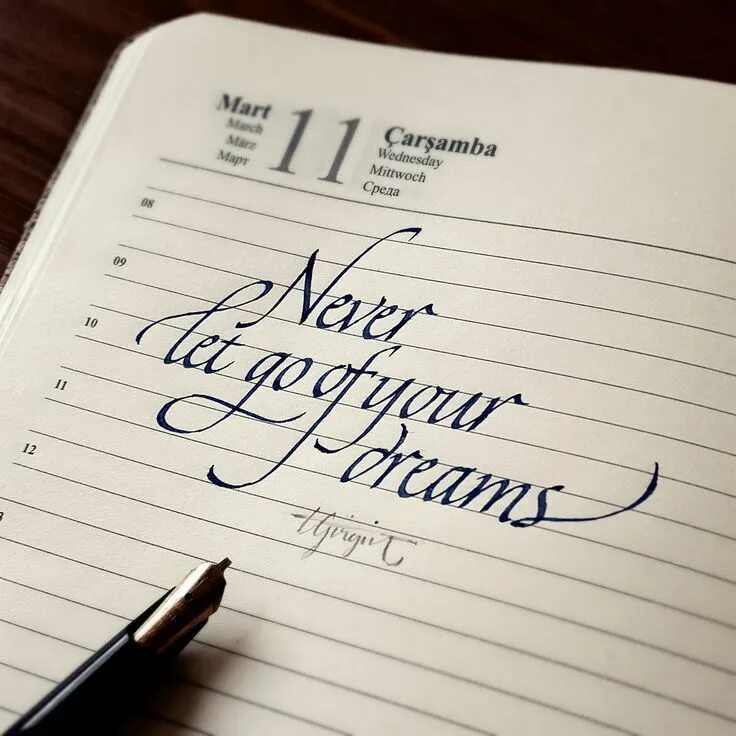 Mart
March
März
Март
11
Çarşamba
Wednesday
Mittwoch
Среда
08
Never
09
let go of your
10
dreams
11
12